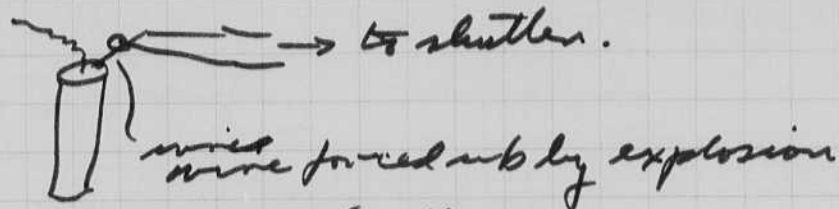 → to shutter.
wires
wire forced up by explosion